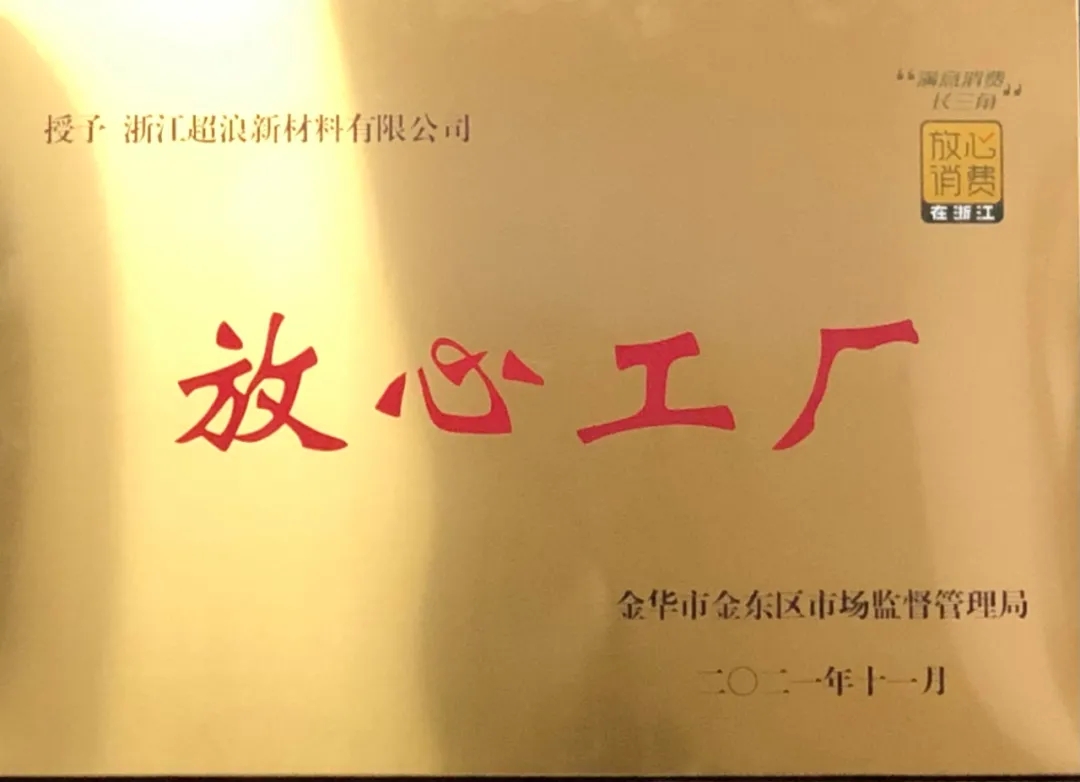 授予 浙江超浪新材料有限公司
“满意消费
长三角”
放心
消费
在浙江
放心工厂
金华市金东区市场监督管理局
二〇二一年十一月